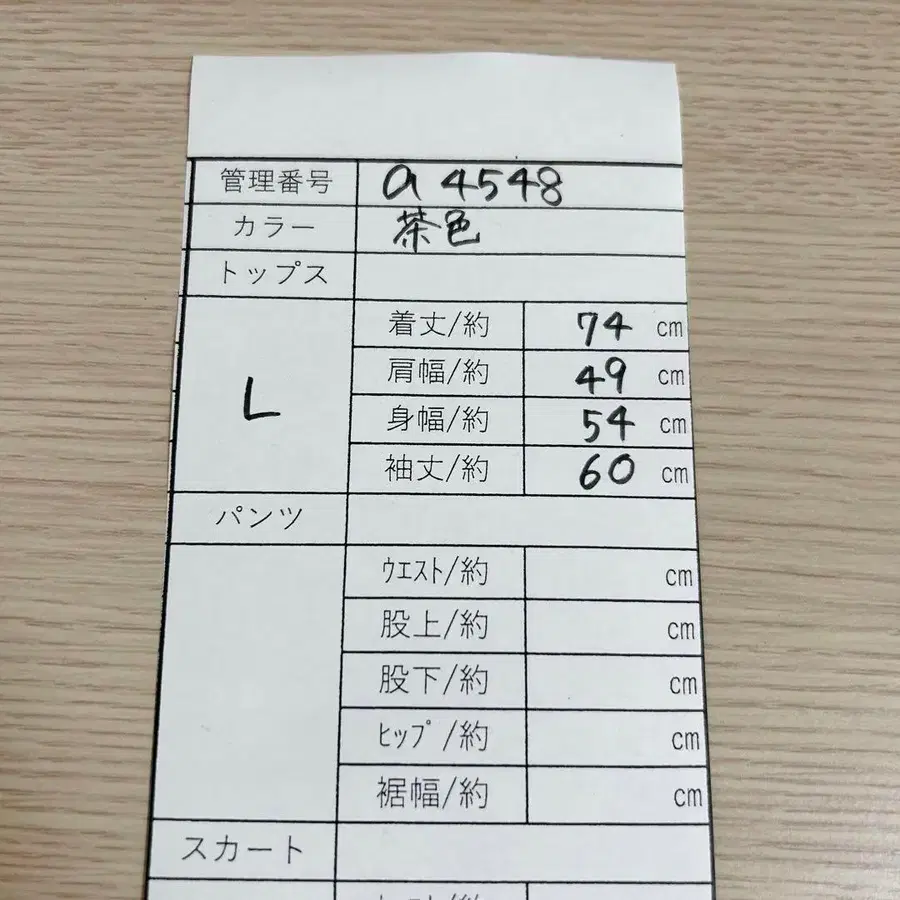 管理番号 a 4548
カラー 茶色
トップス
L
着丈/約 74 cm
肩幅/約 49 cm
身幅/約 54 cm
袖丈/約 60 cm
パンツ
ｳｴｽﾄ/約 cm
股上/約 cm
股下/約 cm
ﾋｯﾌﾟ/約 cm
裾幅/約 cm
スカート